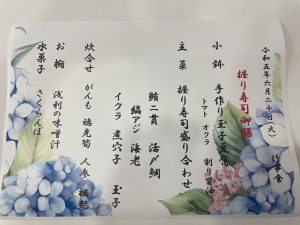 令和五年六月二十日(火) 行事食
握り寿司御膳
小鉢 手作り玉子豆腐
トマト オクラ 割り醤油
主菜 握り寿司盛り合わせ
鮪二貫 活〆鯛
縞アジ 海老
イクラ 煮穴子 玉子
炊合せ がんも 穂先筍 人参
お椀 浅利の味噌汁
水菓子 さくらんぼ